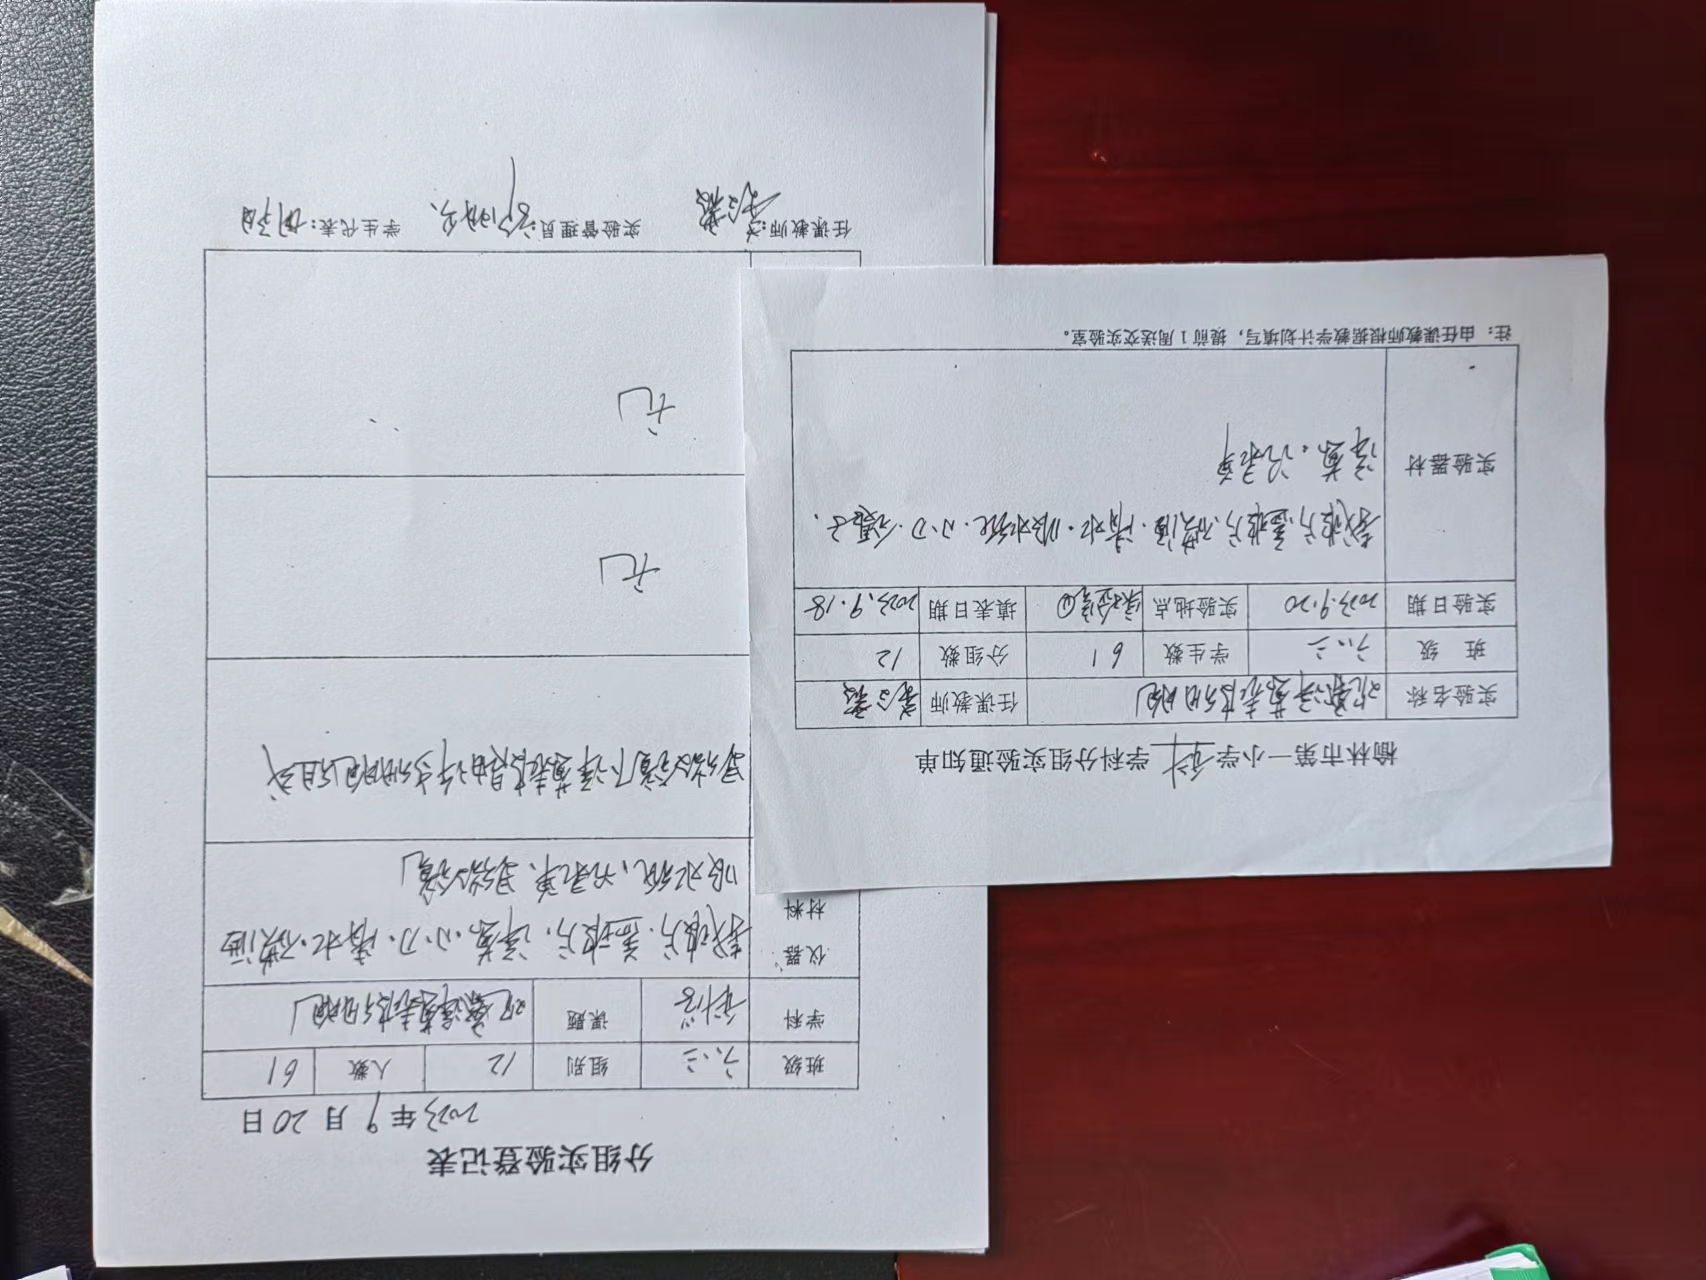 分组实验登记表
2023年9月20日
班级 六、三 组别 12 人数 61
学科 科学 课题 观察洋葱表皮细胞
仪器 材料 载玻片、盖玻片、洋葱、小刀、清水、碘酒
吸水纸、记录单、显微镜
显微镜下洋葱表皮是由许多细胞组成
无
无
任课教师: 实验管理员: 学生代表:
榆林市第一小学科学学科分组实验通知单
实验名称 观察洋葱表皮细胞 任课教师
班 级 六、三 学生数 61 分组数 12
实验日期 2023.9.20 实验地点 实验室 填表日期 2023.9.18
实验器材 载玻片、盖玻片、碘酒、清水、吸水纸、小刀、
洋葱、记录单
注: 由任课教师根据教学计划填写, 提前1周送交实验室。